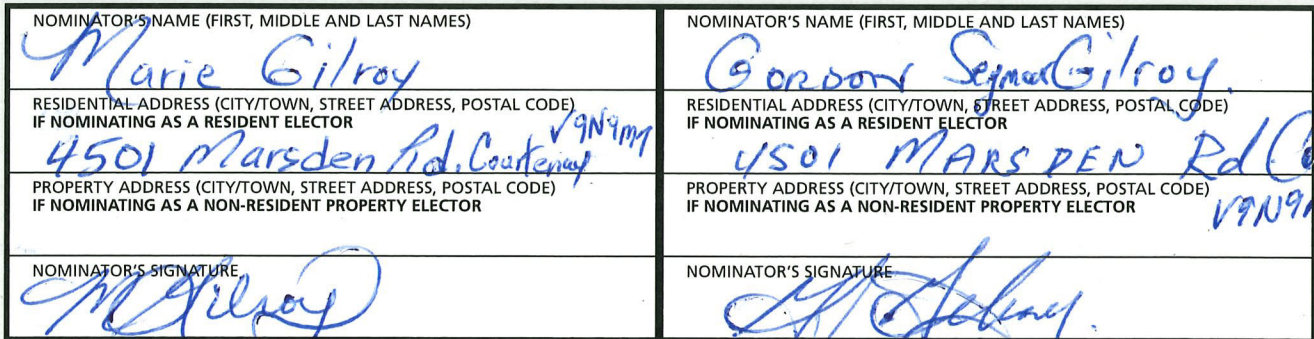 NOMINATOR'S NAME (FIRST, MIDDLE AND LAST NAMES)
Marie Gilroy
RESIDENTIAL ADDRESS (CITY/TOWN, STREET ADDRESS, POSTAL CODE)
IF NOMINATING AS A RESIDENT ELECTOR
V9N9M9
4501 Marsden Rd. Courtenay
PROPERTY ADDRESS (CITY/TOWN, STREET ADDRESS, POSTAL CODE)
IF NOMINATING AS A NON-RESIDENT PROPERTY ELECTOR
NOMINATOR'S SIGNATURE
M Gilroy
NOMINATOR'S NAME (FIRST, MIDDLE AND LAST NAMES)
Gordon Seymour Gilroy.
RESIDENTIAL ADDRESS (CITY/TOWN, STREET ADDRESS, POSTAL CODE)
IF NOMINATING AS A RESIDENT ELECTOR
4501 MARSDEN Rd Co
PROPERTY ADDRESS (CITY/TOWN, STREET ADDRESS, POSTAL CODE)
IF NOMINATING AS A NON-RESIDENT PROPERTY ELECTOR
V9N9
NOMINATOR'S SIGNATURE